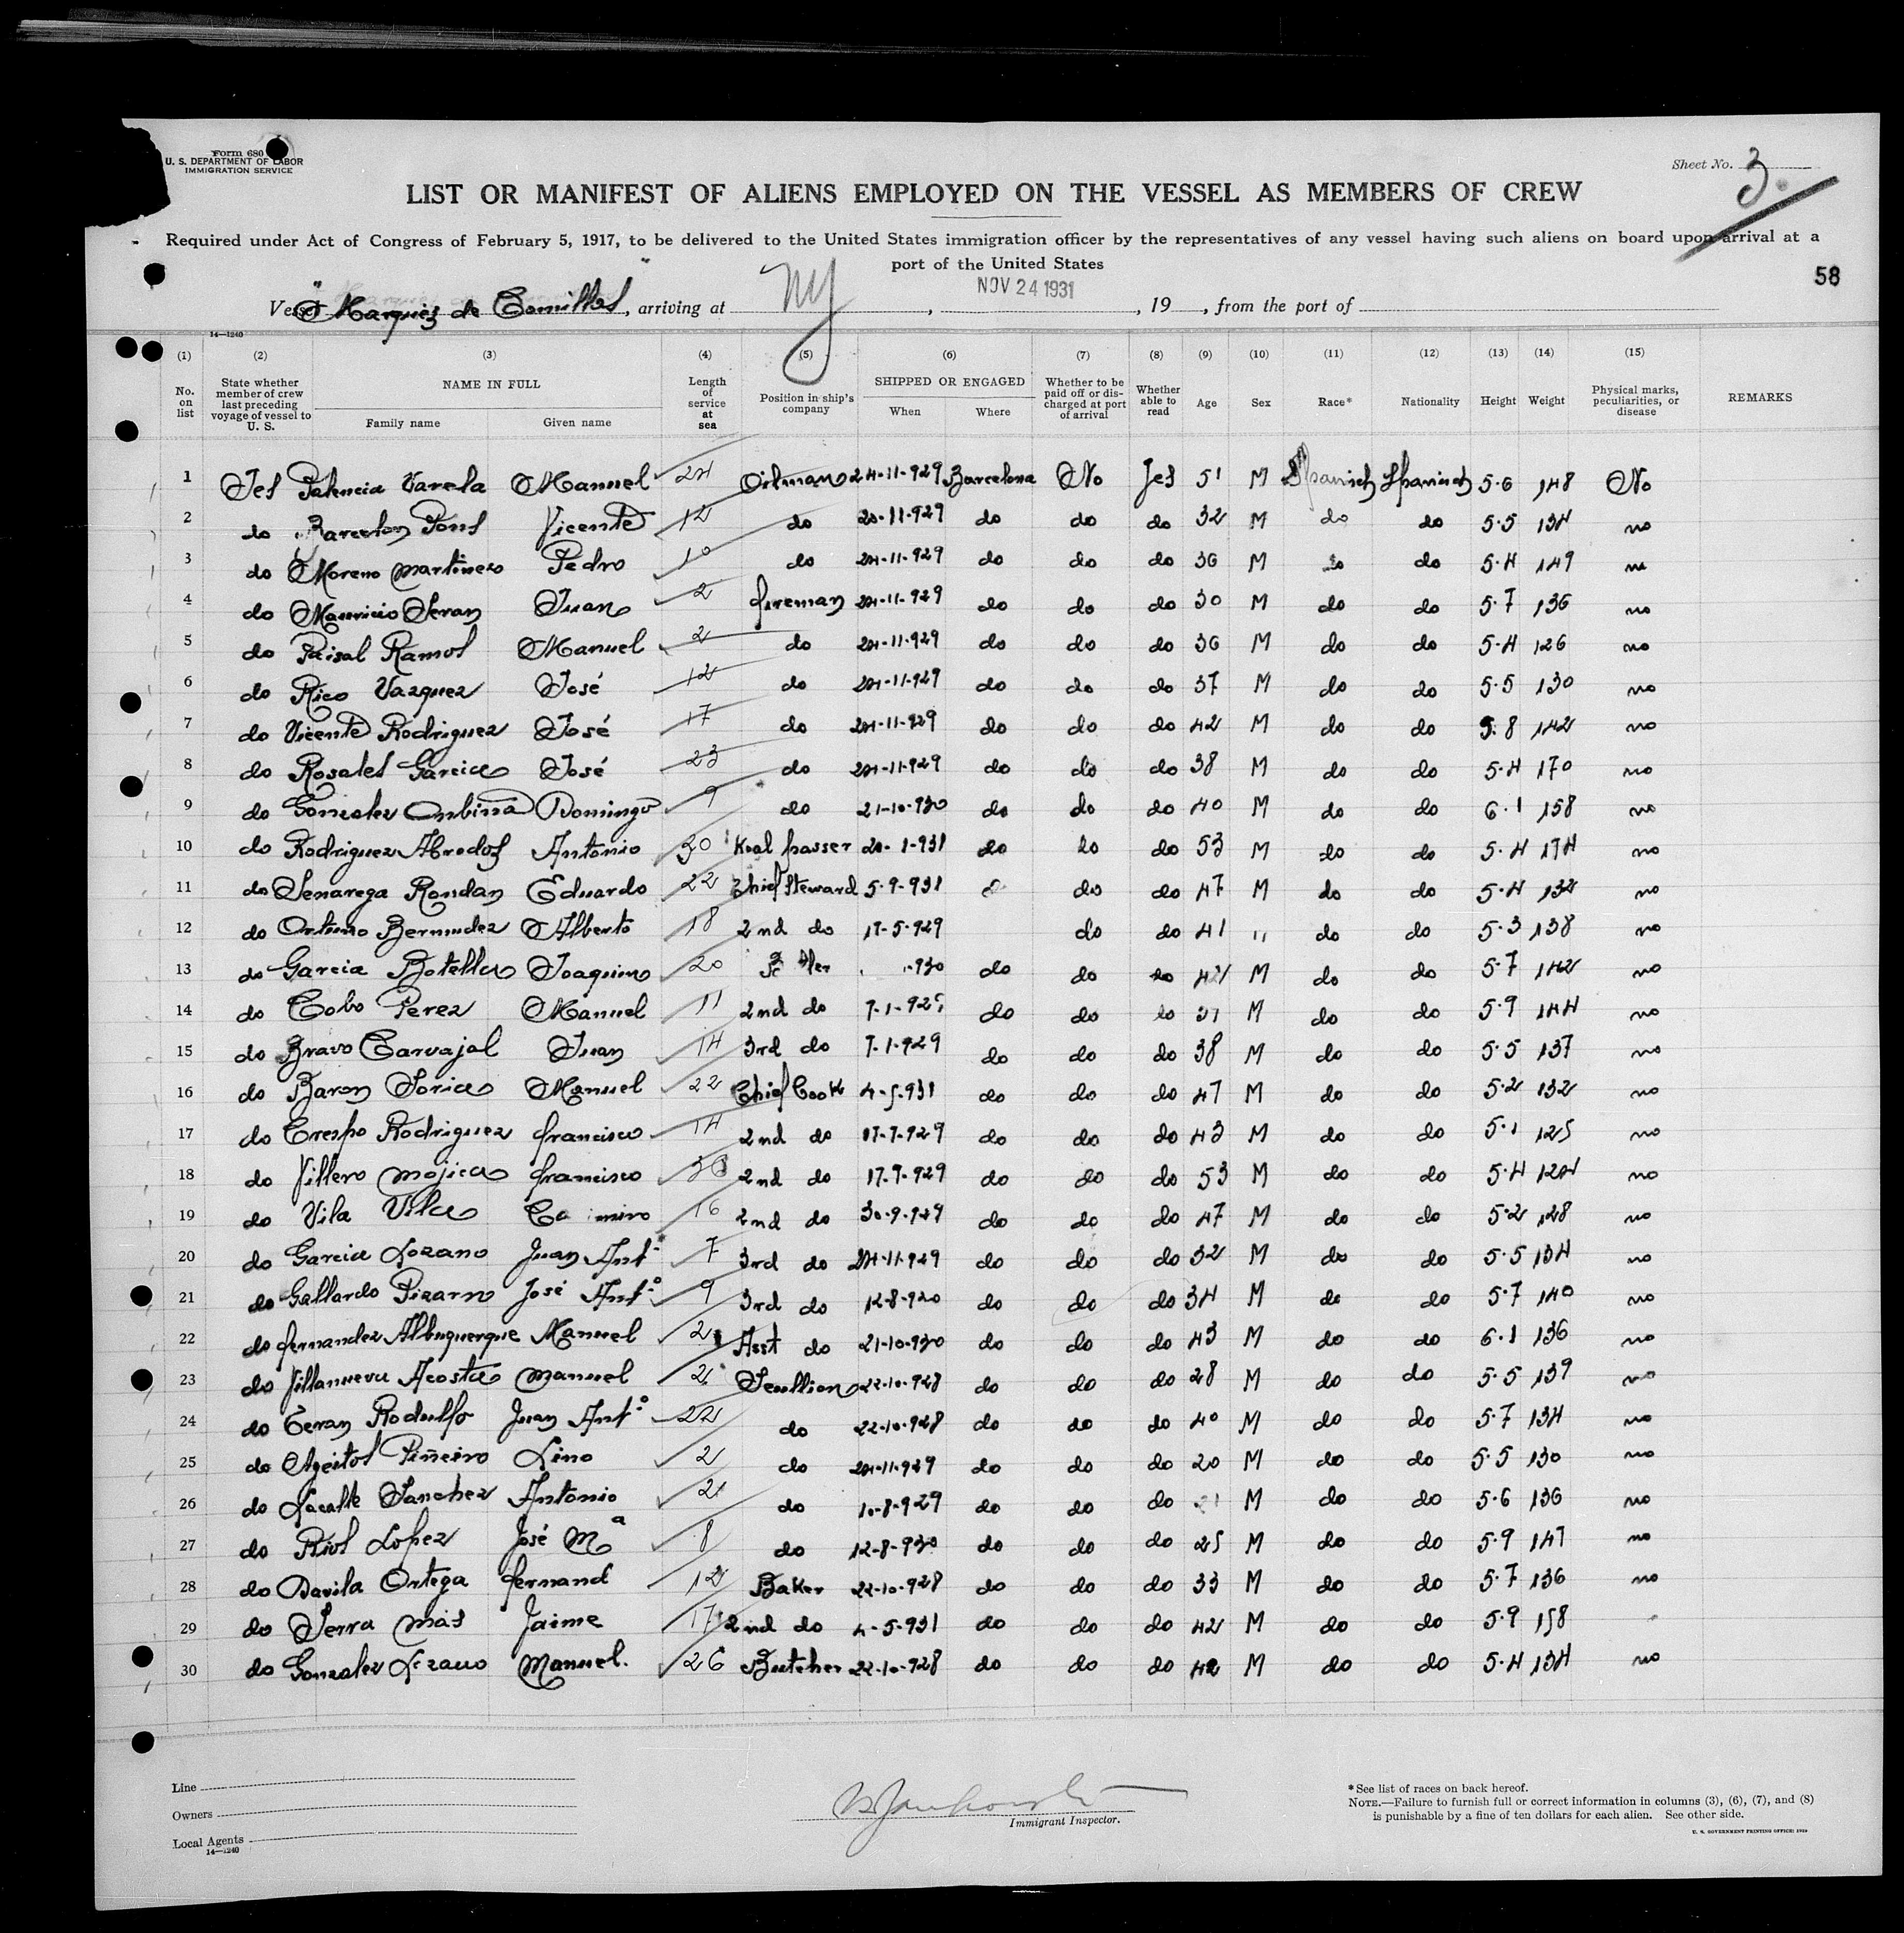 Form 680
U. S. DEPARTMENT OF LABOR
IMMIGRATION SERVICE
Sheet No. 3.
LIST OR MANIFEST OF ALIENS EMPLOYED ON THE VESSEL AS MEMBERS OF CREW
Required under Act of Congress of February 5, 1917, to be delivered to the United States immigration officer by the representatives of any vessel having such aliens on board upon arrival at a
port of the United States
58
Vessel "Marquez de Comillas", arriving at NY, NOV 24 1931, 19, from the port of
14—1240
(1) (2) (3) (4) (5) (6) (7) (8) (9) (10) (11) (12) (13) (14) (15)
No. on list State whether member of crew last preceding voyage of vessel to U. S. NAME IN FULL Family name Given name Length of service at sea Position in ship's company SHIPPED OR ENGAGED When Where Whether to be paid off or discharged at port of arrival Whether able to read Age Sex Race* Nationality Height Weight Physical marks, peculiarities, or disease REMARKS
1 Jes Palencia Varela Manuel 24 Oilman 24-11-929 Barcelona No Jes 51 M Spanich Spanich 5.6 148 No
2 do Barcelon Pons Vicente 12 do 20-11-929 do do do 32 M do do 5.5 134 no
3 do Moreno Martinez Pedro 10 do 24-11-929 do do do 36 M do do 5.4 149 no
4 do Mauricio Teran Juan 2 fireman 24-11-929 do do do 30 M do do 5.7 136 no
5 do Paisal Ramos Manuel 2 do 24-11-929 do do do 36 M do do 5.4 126 no
6 do Rico Vazquez José 12 do 24-11-929 do do do 37 M do do 5.5 130 no
7 do Vicente Rodriguez José 17 do 24-11-929 do do do 42 M do do 5.8 142 no
8 do Rosales Garcia José 23 do 24-11-929 do do do 38 M do do 5.4 170 no
9 do Gonzalez Domingo 9 do 21-10-930 do do do 40 M do do 6.1 158 no
10 do Rodriguez Antonio 30 Koal passer 20-1-931 do do do 53 M do do 5.4 174 no
11 do Senarega Rondan Eduardo 22 Chief Steward 5-9-931 do do 47 M do do 5.4 132 no
12 do Ortuño Bermudez Alberto 18 2nd do 17-5-929 do do 41 " do do 5.3 138 no
13 do Garcia Botella Joaquin 20 930 do do do 42 M do do 5.7 142 no
14 do Cobo Perez Manuel 11 2nd do do do do M do do 5.9 144 no
15 do Bravo Carvajal Juan 14 3rd do 7-1-929 do do do 38 M do do 5.5 137 no
16 do Baron Soria Manuel 22 Chief Cook 4-5-931 do do do 47 M do do 5.2 132 no
17 do Crespo Rodriguez francisco 14 2nd do 17-7-929 do do do 43 M do do 5.1 125 no
18 do Villero Mojica francisco 2nd do 17-9-929 do do do 53 M do do 5.4 124 no
19 do Vila Vila 16 2nd do 30-9-929 do do do 47 M do do 5.2 128 no
20 do Garcia Lozano Juan Antº 7 3rd do 24-11-929 do do do 32 M do do 5.5 134 no
21 do Gallardo Pizarro José Antº 9 3rd do 12-8-920 do do do 34 M do do 5.7 140 no
22 do fernandez Albuquerque Manuel 2 Asst do 21-10-930 do do do 43 M do do 6.1 136 no
23 do Villanueva Acosta Manuel 2 Scullion 22-10-928 do do do 28 M do do 5.5 139 no
24 do Teran Rodulfo Juan Antº 22 do 22-10-928 do do do 40 M do do 5.7 134 no
25 do Ageitos Piñeiro Lino 2 do 24-11-929 do do do 20 M do do 5.5 130 no
26 do Lacalle Sanchez Antonio 2 do 10-8-929 do do do M do do 5.6 136 no
27 do Rios Lopez José Mª 8 do 12-8-930 do do do 25 M do do 5.9 147 no
28 do Davila Ortega fernand 12 Baker 22-10-928 do do do 33 M do do 5.7 136 no
29 do Serra Mas Jaime 17 2nd do 4-5-931 do do do 42 M do do 5.9 158
30 do Gonzalez Lozano Manuel. 26 Butcher 22-10-928 do do do 42 M do do 5.4 134 no
Line
Owners
Local Agents
14—1240
Immigrant Inspector.
*See list of races on back hereof.
NOTE.—Failure to furnish full or correct information in columns (3), (6), (7), and (8)
is punishable by a fine of ten dollars for each alien. See other side.
U. S. GOVERNMENT PRINTING OFFICE: 1929